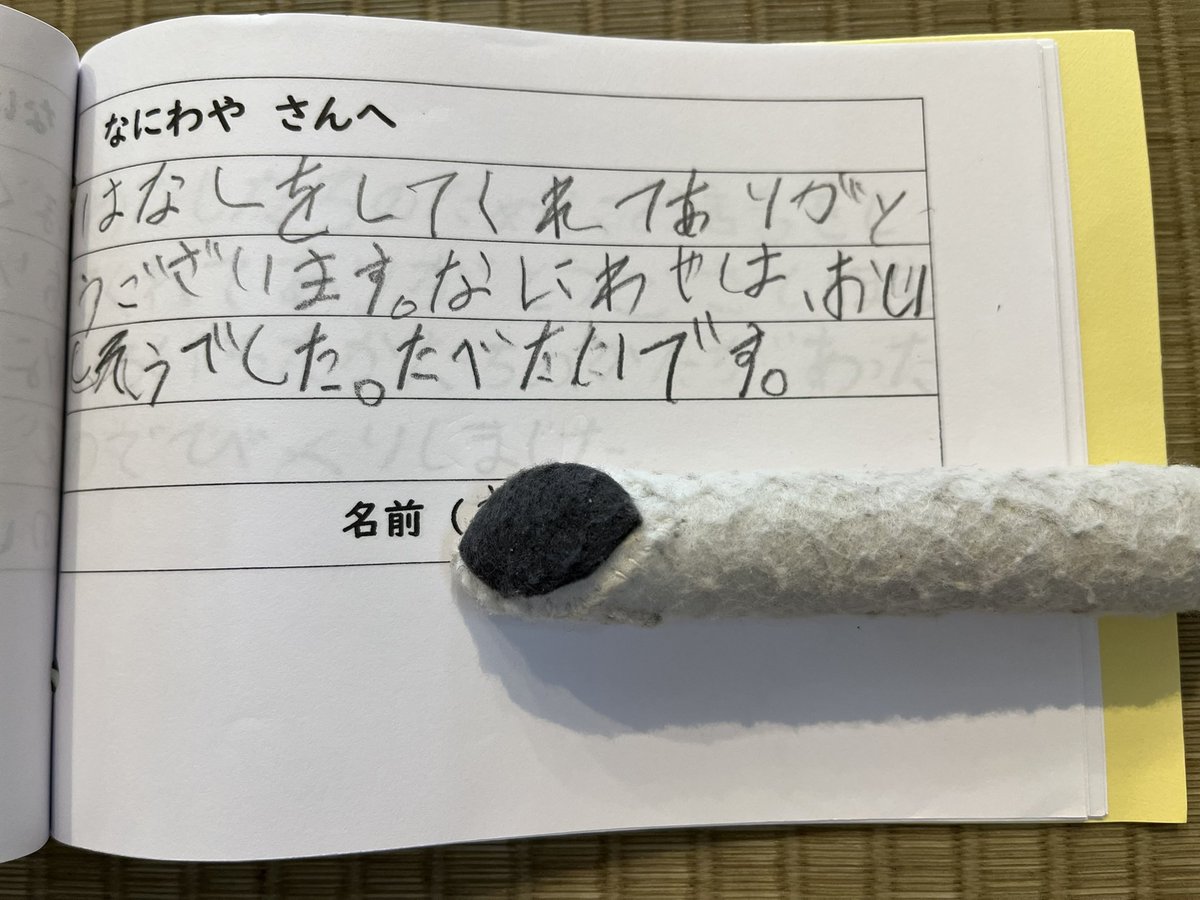 なにわや さんへ
はなしをしてくれてありがと
うございます。なにわやは、おい
しそうでした。たべたたいです。
名前（